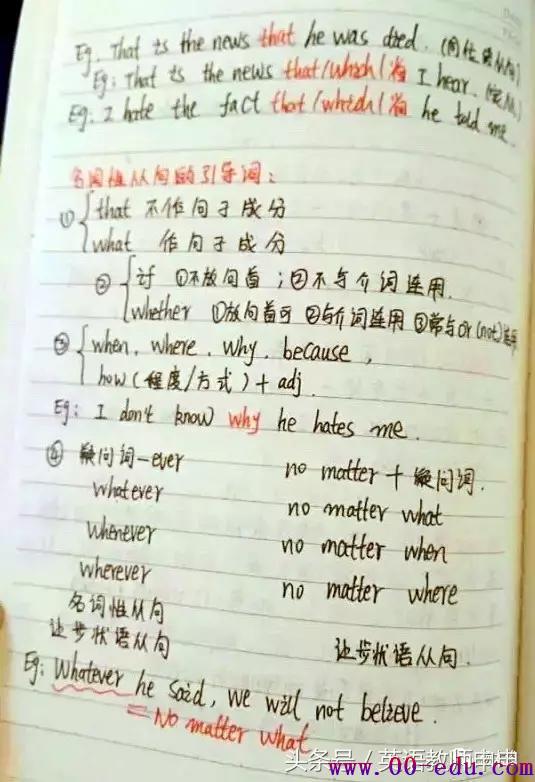 Eg. That is the news that he was died. (同位语从句)
Eg: That is the news that/which/省 I hear. (定从)
Eg: I hate the fact that/which/省 he told me.
名词性从句的引导词:
① { that 不作句子成分
what 作句子成分
② { if ①不放句首 ; ②不与介词连用.
whether ①放句首可 ②与介词连用 ③常与or (not)连用
③ { when, where, why, because,
how (程度/方式) + adj
Eg: I don't know why he hates me.
④ 疑问词-ever no matter + 疑问词.
whatever no matter what
whenever no matter when
wherever no matter where
名词性从句
让步状语从句 让步状语从句.
Eg: Whatever he said, we will not believe.
= No matter what
头条号 / 英语教师申申
www.00-edu.com